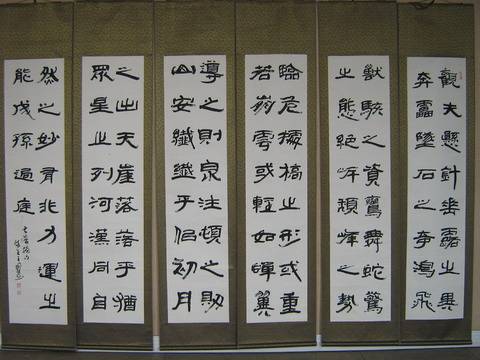 觀夫懸針垂露之異
奔靁墜石之奇鴻飛
獸駭之資鸞舞蛇驚
之態絕岸頹峰之勢
臨危據槁之形或重
若崩雲或輕如蟬翼
導之則泉注頓之則
山安纖纖乎佀初月
之出天崖落落乎猶
眾星之列河漢同自
然之妙有非力運之
能成孫過庭